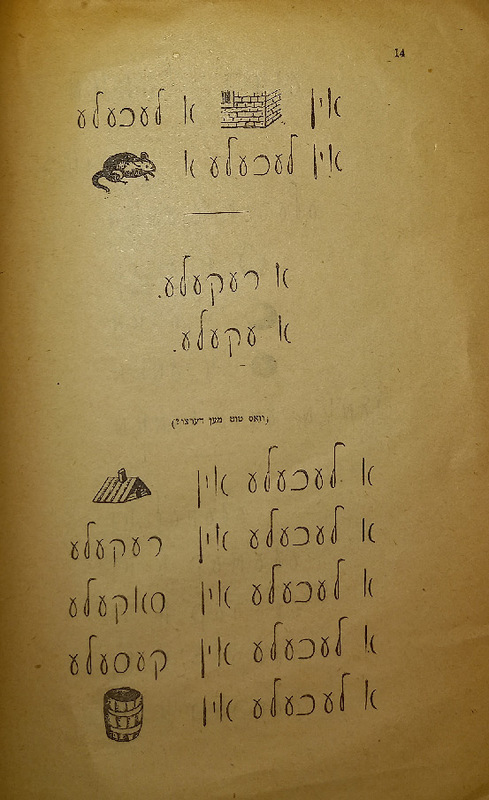 14
אין א לעכעלע
אין לעכעלע א
א רעקעלע.
א עקעלע.
(וואס טוט מען דערצו?)
א לעכעלע אין
א לעכעלע אין רעקעלע
א לעכעלע אין סאקעלע
א לעכעלע אין קעסעלע
א לעכעלע אין